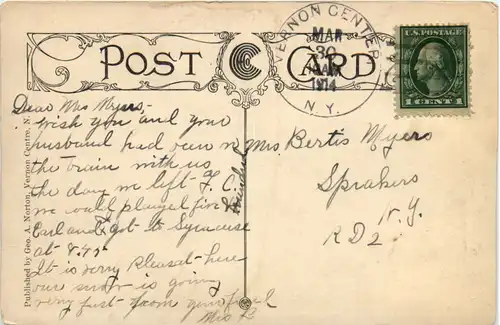 POST CARD
VERNON CENTER
MAR
30
AM
1914
N.Y.
U.S. POSTAGE
1 CENT 1
Published by Geo. A. Norton, Vernon Centre, N.
Dear Mrs Myers-
wish you and your
husband had been
the train with us
the day we left F.
we could played five
Earl and I got to Syracuse
at 8.45
It is very pleasant here
our snow is going
very fast from your friend
Mrs B
Mrs Bertis Myers
Sprakers
N.Y.
RD2